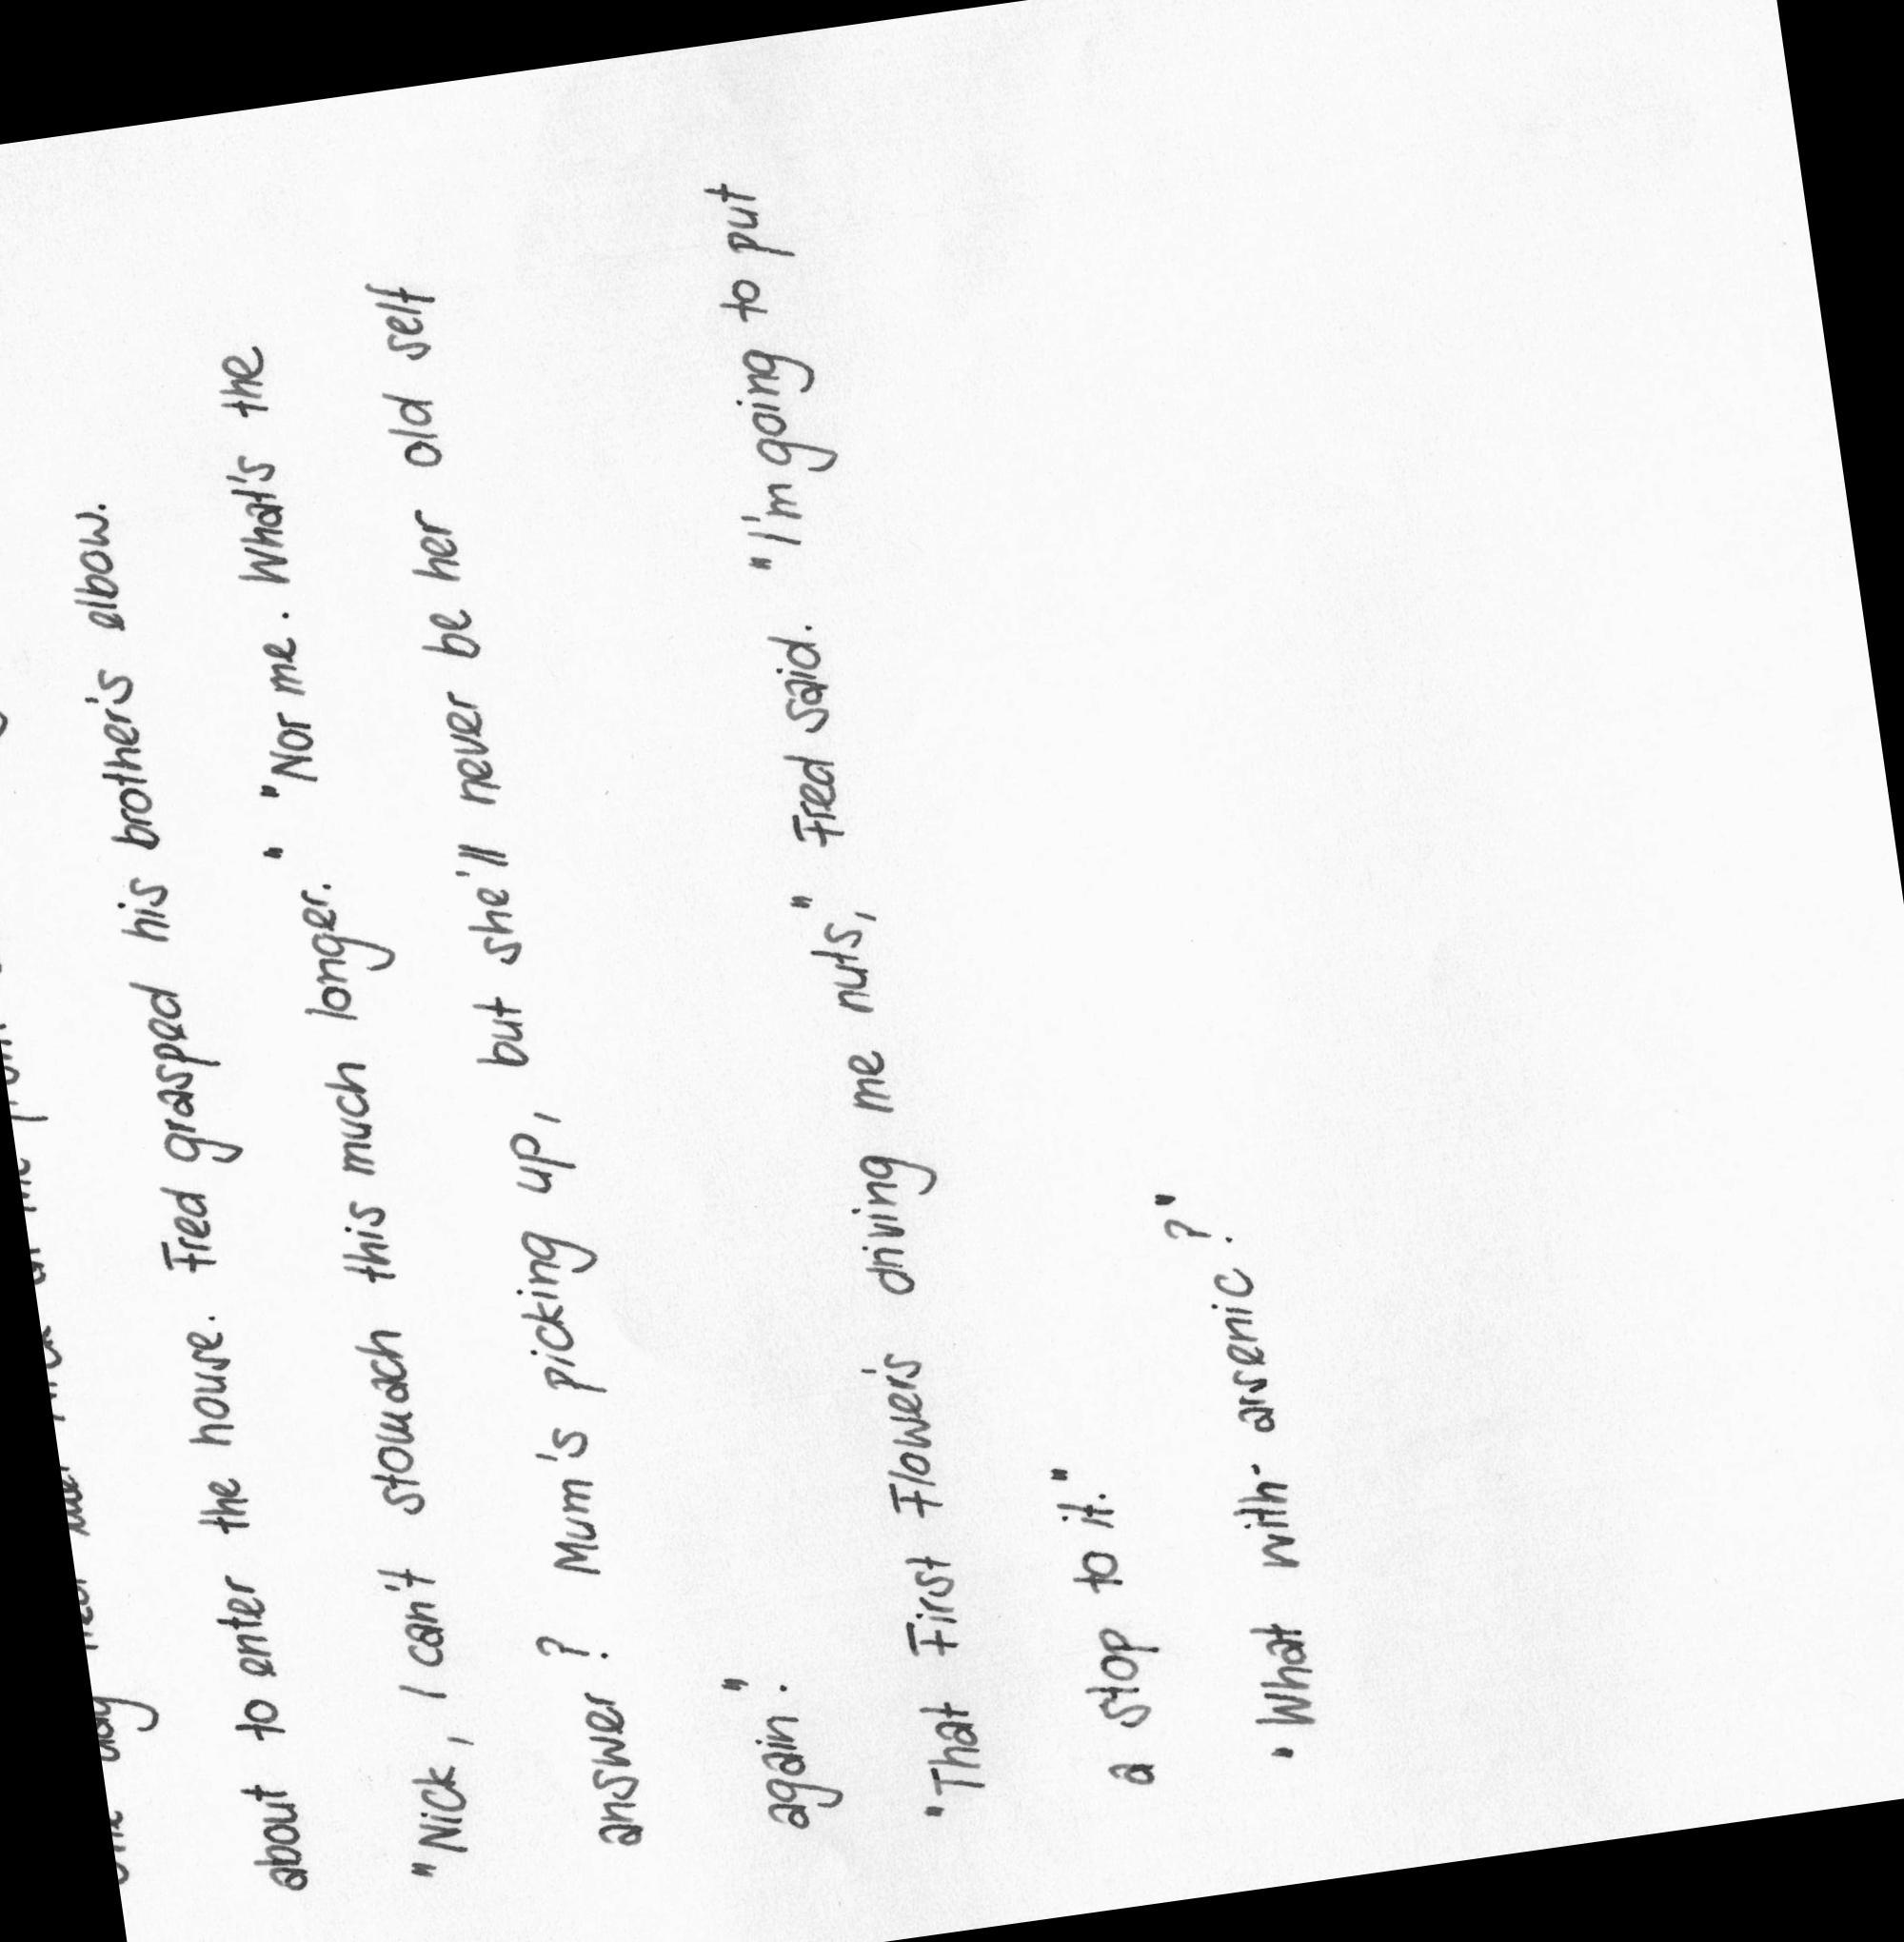 about to enter the house. Fred grasped his brother's elbow.
"Nick, I can't stomach this much longer." "Nor me. What's the
answer? Mum's picking up, but she'll never be her old self
again."
"That First Flower's driving me nuts," Fred said. "I'm going to put
a stop to it."
"What with - arsenic?"